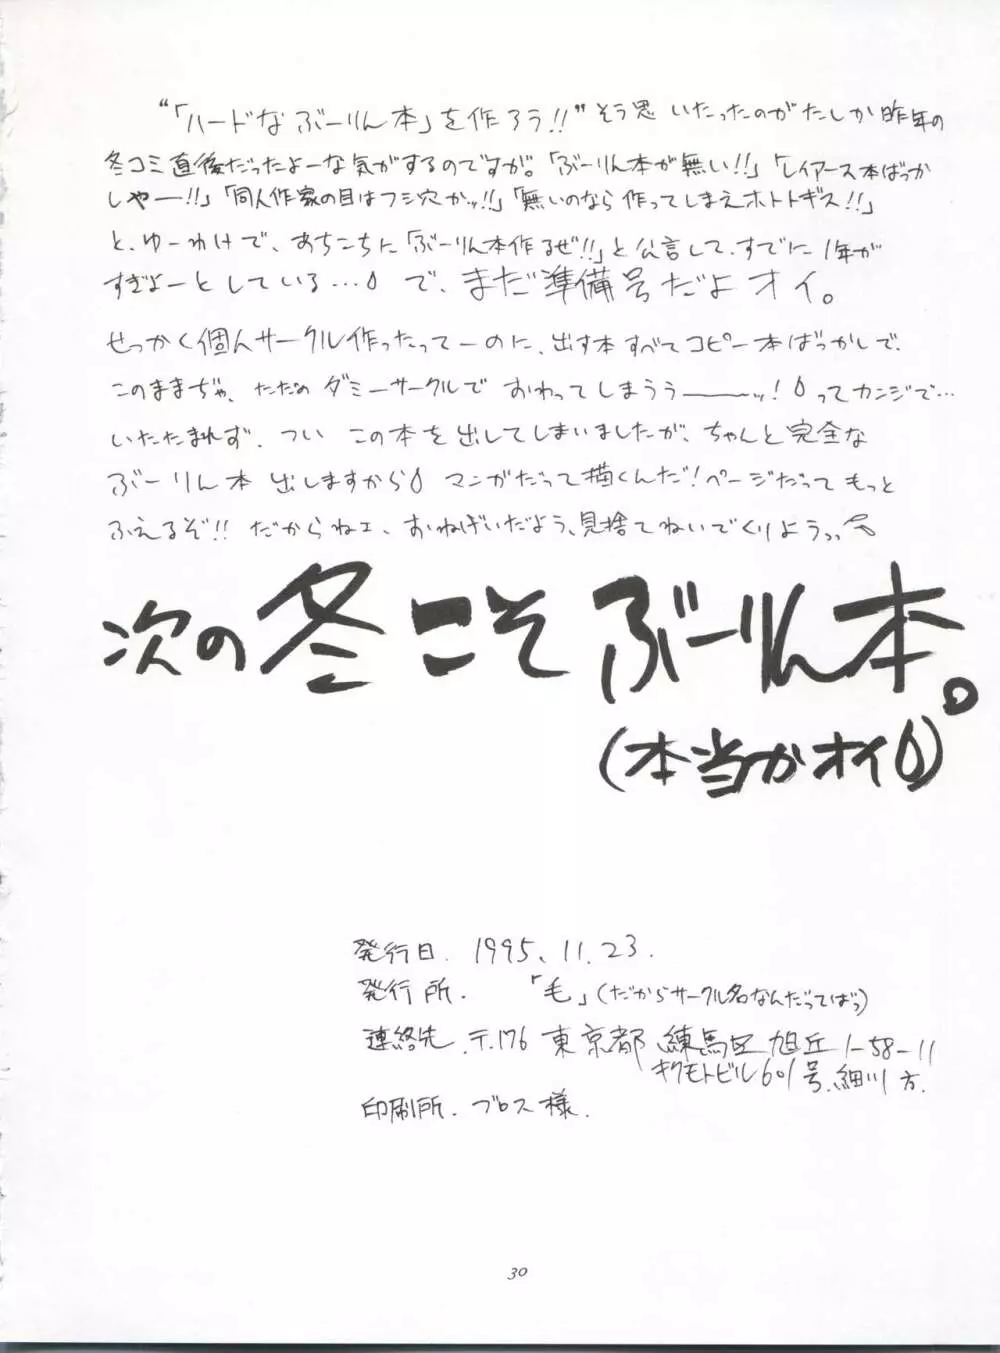 “「ハードなぶーりん本」を作ろう!!”そう思いたったのがたしか昨年の
冬コミ直後だったよーな気がするのですが。「ぶーりん本が無い!!」「レイアース本ばっか
しやー!!」「同人作家の目はフシ穴かッ!!」「無いのなら作ってしまえホトトギス!!」
と、ゆーわけで、あちこちに「ぶーりん本作るぜ!!」と公言して、すでに1年が
すぎよーとしている…で、まだ準備号だよオイ。
せっかく個人サークル作ったってーのに、出す本すべてコピー本ばっかしで、
このままぢゃ、ただのダミーサークルでおわってしまううーーッ!ってカンジで…
いたたまれず、ついこの本を出してしまいましたが、ちゃんと完全な
ぶーりん本出しますからマンガだって描くんだ!ページだってもっと
ふえるぞ!!だからねェ、おねげいだよう、見捨てねいでくりようっ、
次の冬こそぶーりん本。
(本当かオイ)
発行日. 1995、11.23.
発行所. 「毛」(だからサークル名なんだってばっ)
連絡先.〒176 東京都 練馬区 旭丘 1-58-11
キクモトビル601号.細川方.
印刷所. ブロス様.
30